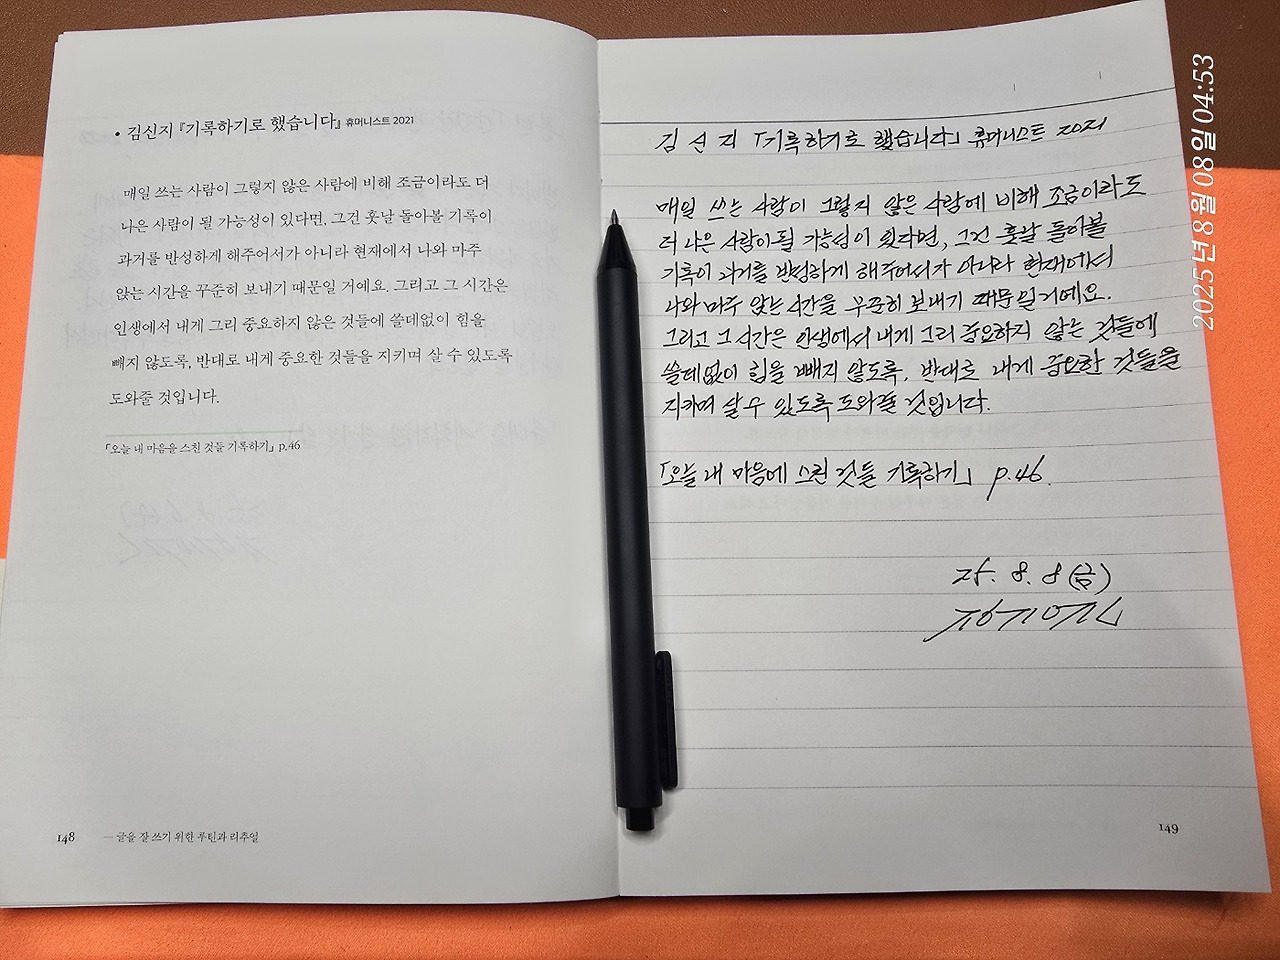 • 김신지 『기록하기로 했습니다』 휴머니스트 2021
매일 쓰는 사람이 그렇지 않은 사람에 비해 조금이라도 더
나은 사람이 될 가능성이 있다면, 그건 훗날 돌아볼 기록이
과거를 반성하게 해주어서가 아니라 현재에서 나와 마주
앉는 시간을 꾸준히 보내기 때문일 거예요. 그리고 그 시간은
인생에서 내게 그리 중요하지 않은 것들에 쓸데없이 힘을
빼지 않도록, 반대로 내게 중요한 것들을 지키며 살 수 있도록
도와줄 것입니다.
「오늘 내 마음을 스친 것들 기록하기」 p.46
148 — 글을 잘 쓰기 위한 루틴과 리추얼
김신지 「기록하기로 했습니다」 휴머니스트 2021
매일 쓰는 사람이 그렇지 않은 사람에 비해 조금이라도
더 나은 사람이 될 가능성이 있다면, 그건 훗날 돌아볼
기록이 과거를 반성하게 해주어서가 아니라 현재에서
나와 마주 앉는 시간을 꾸준히 보내기 때문일 거예요.
그리고 그 시간은 인생에서 내게 그리 중요하지 않는 것들에
쓸데없이 힘을 빼지 않도록, 반대로 내게 중요한 것들을
지키며 살 수 있도록 도와줄 것입니다.
「오늘 내 마음에 스친 것들 기록하기」 p.46.
25. 8. 8 (금)
149
2025년 8월 08일 04:53